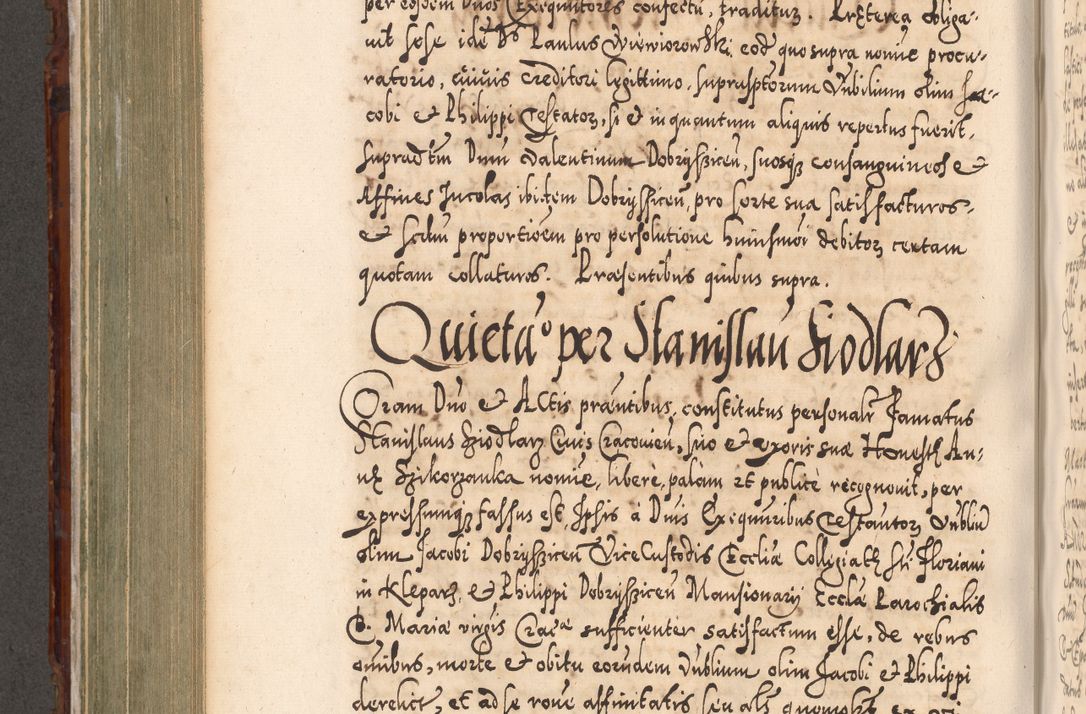 per eosdem Dnos Exequutores confectū, traditur. Prȩterea obliga-
vit sese idē Ds Paulus Wiewiorowski, eodē quo supra nomie procu-
ratorio, cuivis creditori legittimo, suprasptorum Vnbilium olim Ja-
cobi et Philippi Testator, si et in quantum aliquis repertus fuerit,
supradtm Dnm Valentinum Dobryszicen, suosq consanguineos et
Affines Incolas ibidem Dobryszicen, pro sorte sua satisfacturos,
et scdm proportioem pro persolutione huiusmoi debitor certam
quotam collaturos. Præsentibus quibus supra.
Quietāo per Stanislaū Siodlarz
Coram Dno et Actis præntibus, constitutus personalr Famatus
Stanislaus Siodlarz Civis Cracovien, suo et uxoris suæ Honestȩ An-
nȩ Szikorzanka nomie, liberè, palàm et publicè recognovit, per
expressumq fassus est, Ipsis à Dnis Exequutoribus Testamtor Vnbliū
olim Jacobi Dobryszicen ViceCustodis Eccliæ Collegiatȩ Sti Floriani
in Kleparz, et Philippi Dobryszicen Mansionarij Ecclæ Parochialis
B. Mariæ virgis Cracæ sufficienter satisfactum esse, de rebus
omibus, morte et obitu eorundem Vnblium olim Jacobi et Philippi
derelict, et ad se rōne affinitatis seu als quomolt